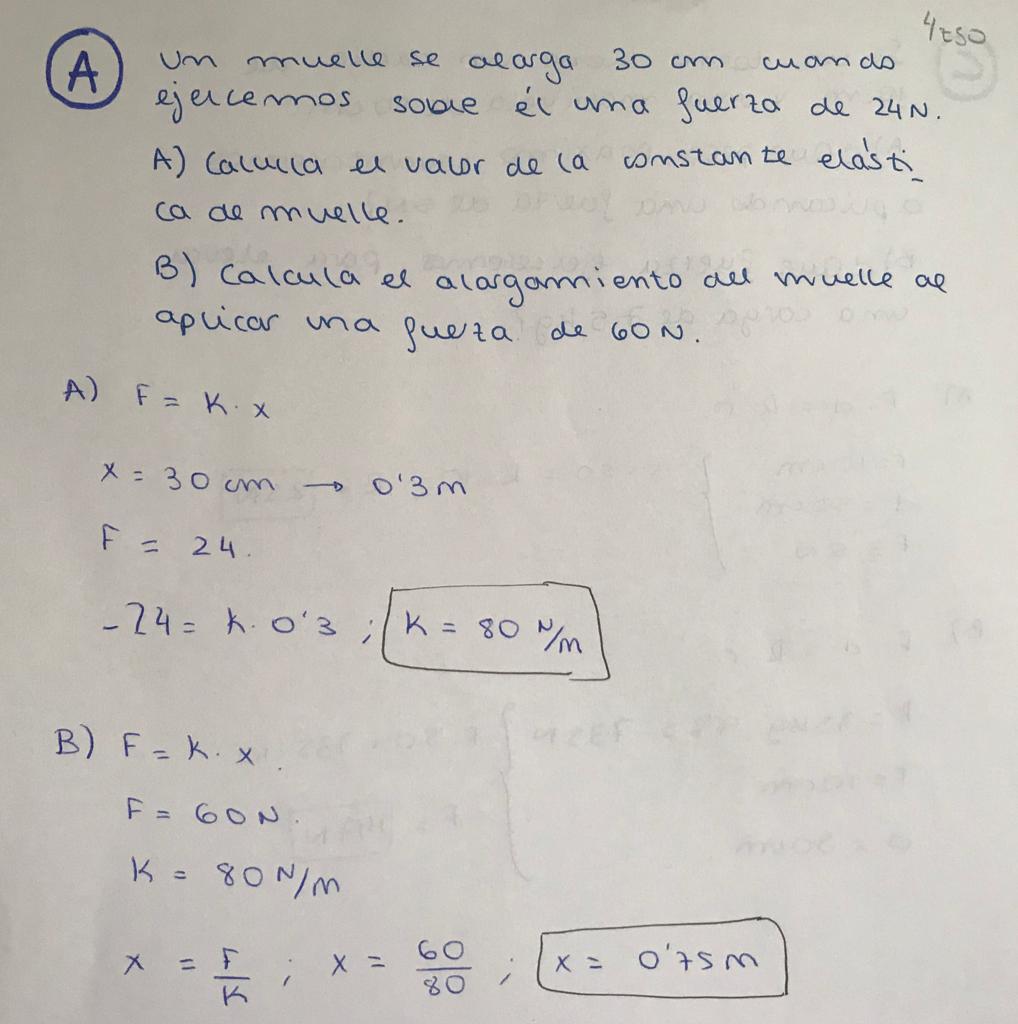 4ESO
A
Un muelle se alarga 30 cm cuando
ejercemos sobre él una fuerza de 24N.
A) Calcula el valor de la constante elásti_
ca de muelle.
B) Calcula el alargamiento del muelle al
aplicar una fuerza de 60N.
A) F = K. x
x = 30 cm → 0'3m
F = 24.
-24 = K. 0'3 ; K = 80 N/m
B) F = K. x.
F = 60N.
K = 80N/m
x = F/K ; x = 60/80 ; x = 0'75m